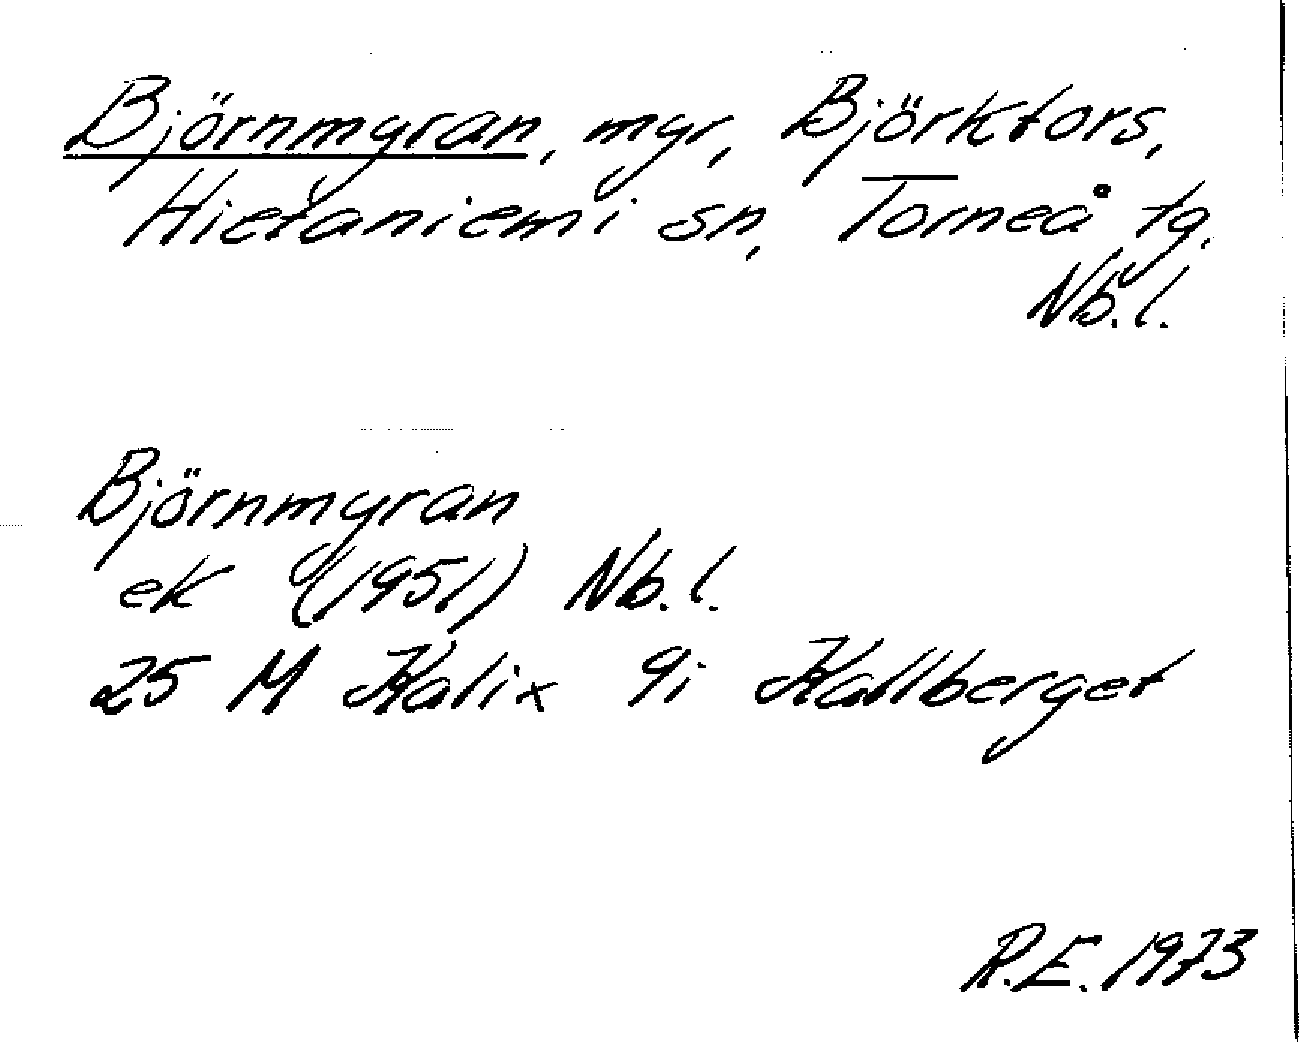 Björnmyran, myr, Björkfors,
Hietaniemi sn, Torneå tg.
Nb.l.
Björnmyran
ek (1951) Nb.l.
25 M Kalix 9i Kallberget
R.E. 1973